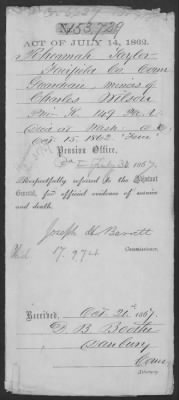 N153,729
ACT OF JULY 14, 1862.
Nehemiah Taylor
Fairfield Co. Conn
Guardian, minors of
Charles Wilson
Priv K. 149 Pa. V.
Died at Wash. D.C.
Oct. 15. 1862.
Pension Office,
July 31 1867.
Respectfully referred to the Adjutant
General, for official evidence of service
and death.
Joseph H. Barrett
Commissioner.
17.974
Received, Oct 21st 1867.
D. B. Booth
Danbury
Conn
Attorney.